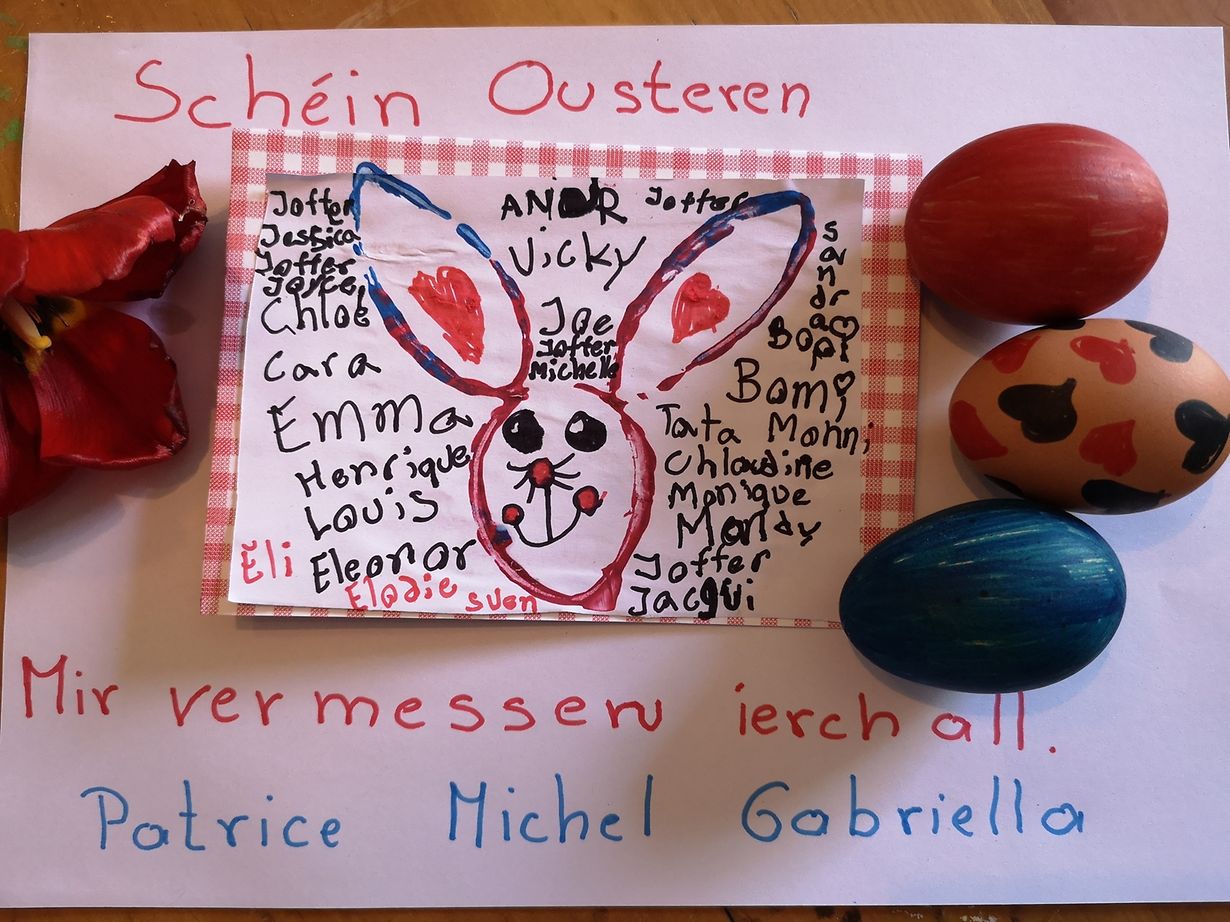 Schéin Ousteren
Joffer
Jessica
Joffer
Joyce
Chloé
Cara
Emma
Henrique
Louis
Eli
Eleonor
Elodie
sven
Vicky
Joe
Joffer
Michelle
Joffer
sandra
Bopi
Bomi
Tata Monni
Chlaudine
Monique
Mandy
Joffer
Jacqui
Mir vermessen ierch all.
Patrice Michel Gabriella